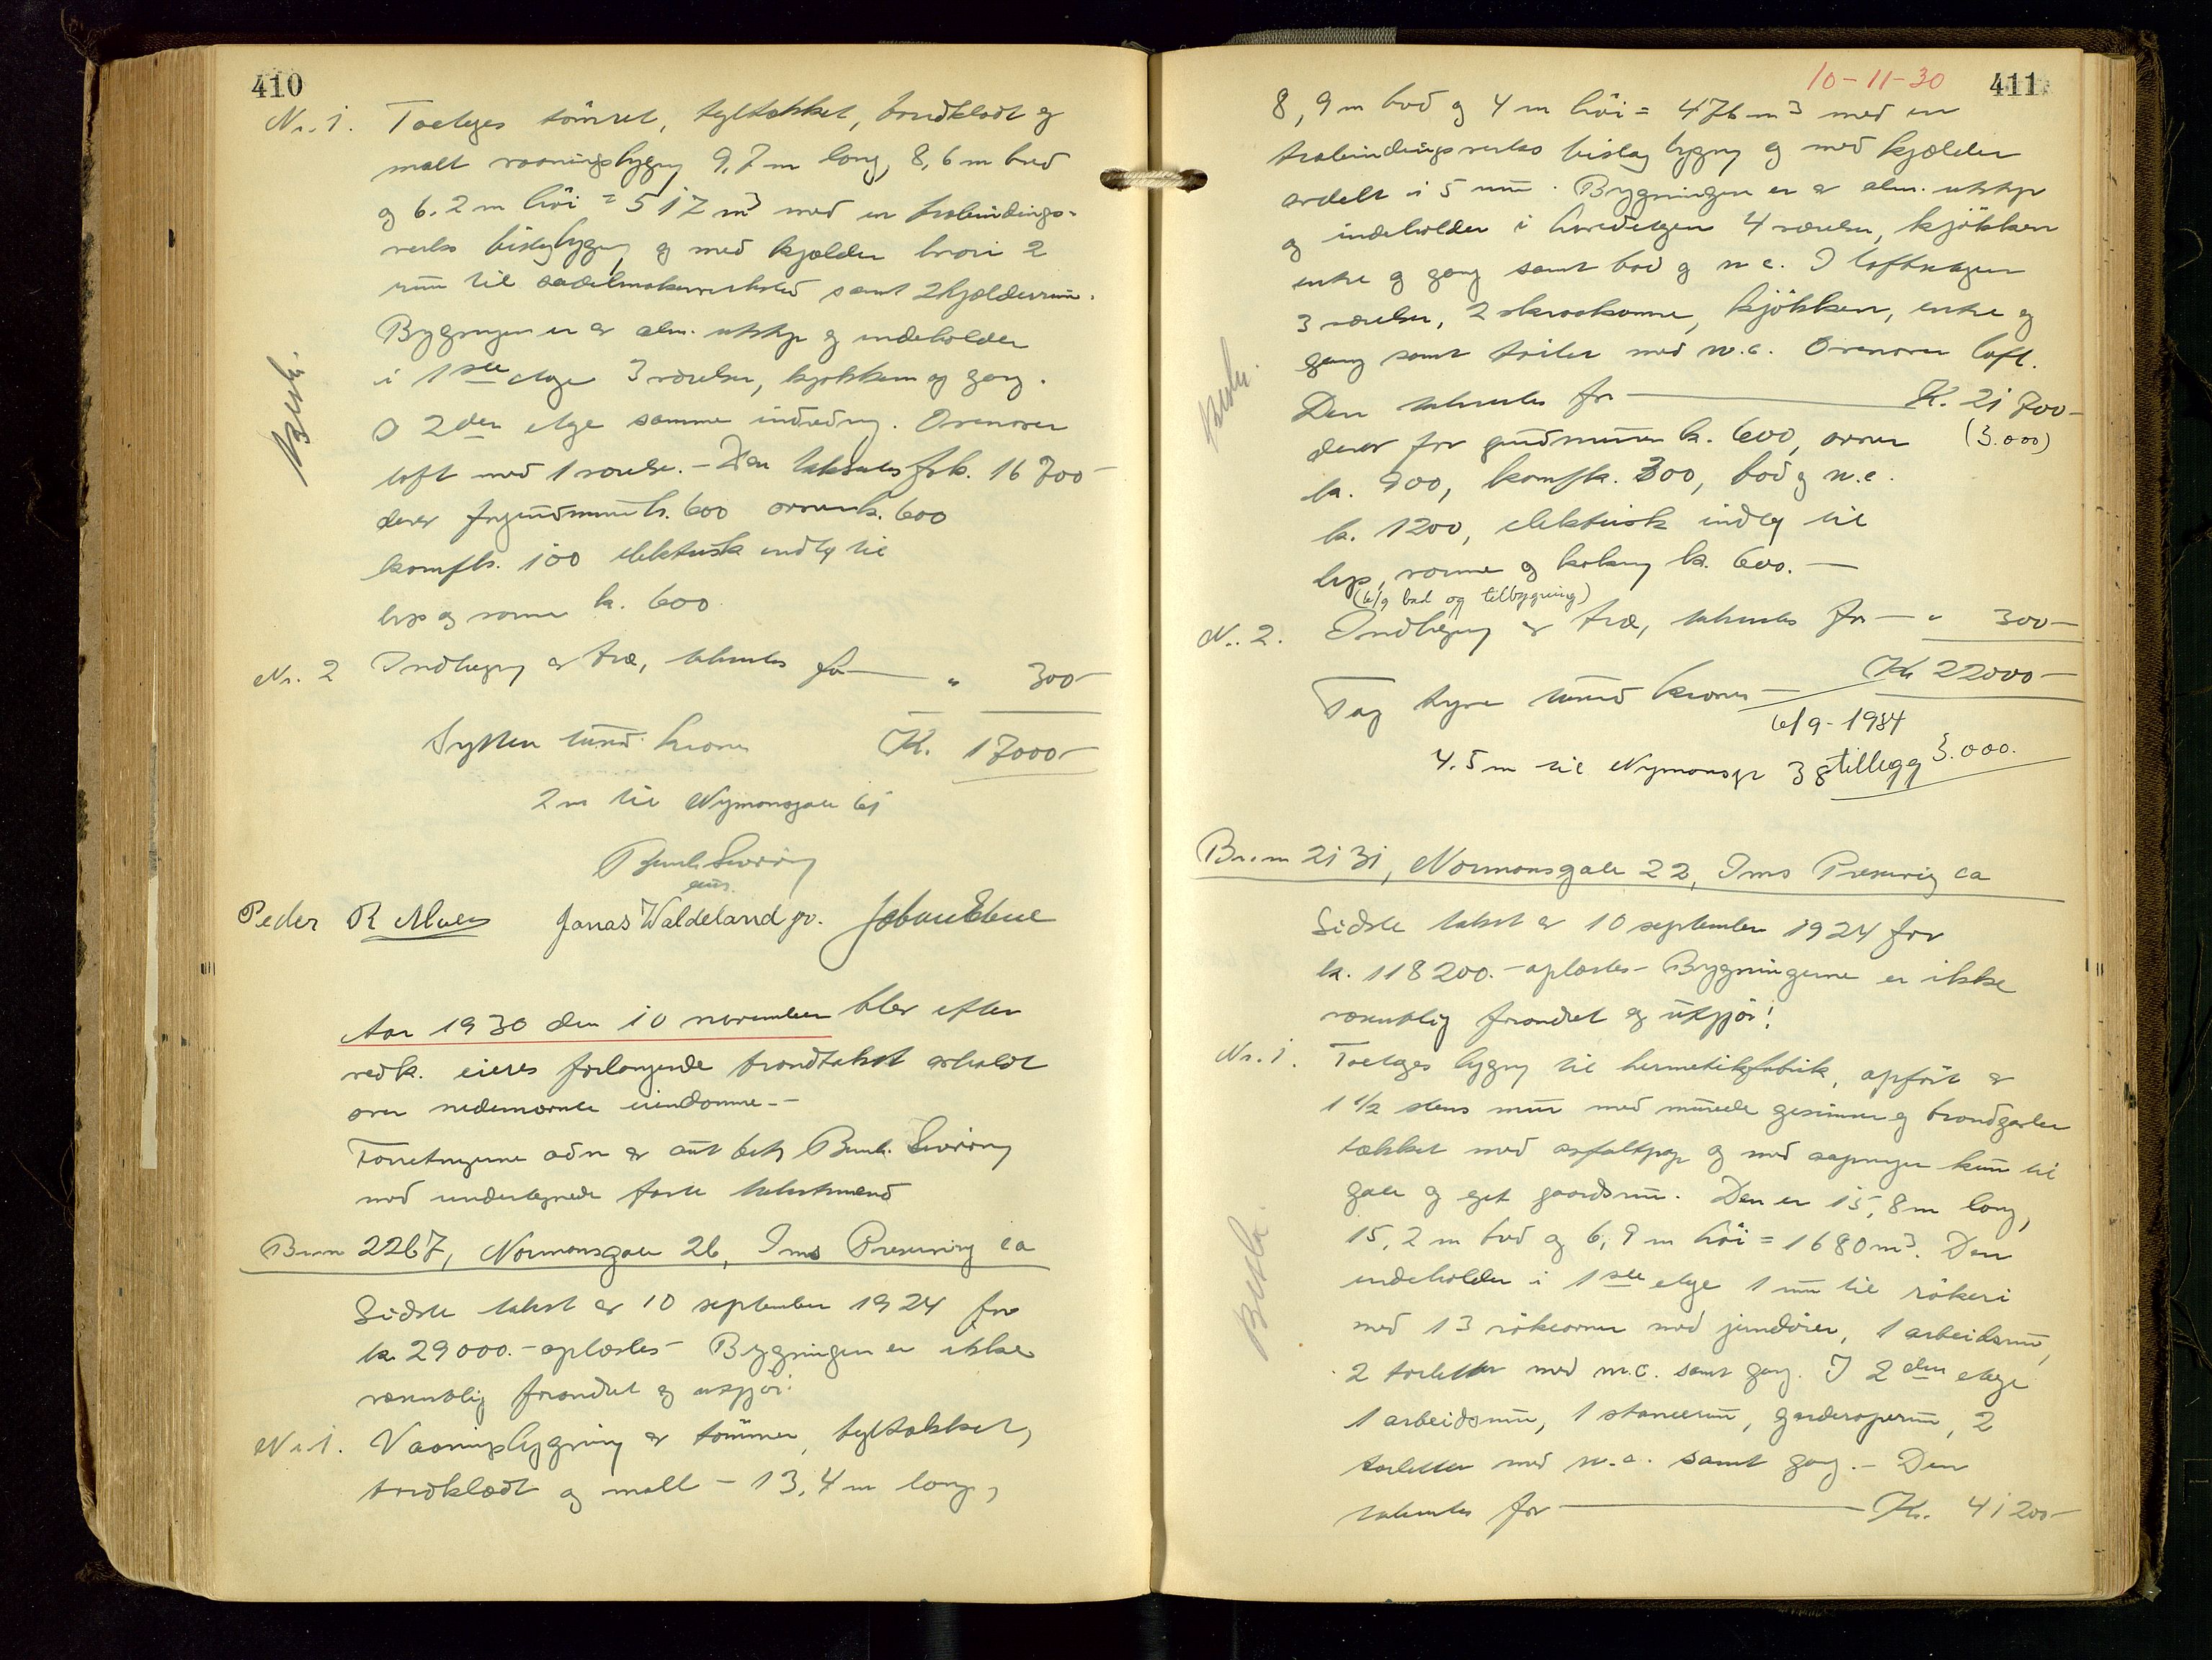 410
Nr. 1. Toetages tömret, tegltækket, bordklædt og
malt vaaningsbygng 9,7 m lang, 8,6 m bred
og 6.2 m höi = 517 m3 med en trabindings-
verks bislagbygng og med kjælder hvori 2
rum til sadelmakerverksted samt 2 kjælderrum.
Bygningen er av alm. utstyr og indeholder
i 1ste etage 3 værelser, kjøkken og gang.
I 2den etage samme indredning. Ovenover
loft med 1 værelse. - Den takseres for k. 16700-
derav for grundmuren k. 600 ovner k. 600
komf k. 100 elektrisk indlæg til
lys og varme k. 600
Besk.
Nr. 2 Indhegng av træ, takseres for — " 300-
Sytten tusind kroner K. 17000-
2 m til Nymansgate 61
Bernh. Sværing
Peder R Mæle Jonas Waldeland jr. Johan Eltue
Aar 1930 den 10 november blev efter
vedk. eieres forlangende brandtakst avholdt
over nedennævnte eiendomme.-
Forretningerne adm av aut best Bernh. Sværing
med undertegnede faste takstmænd
Br.nr 2267, Normansgate 26, Ims Preserving co
Sidste takst av 10 september 1924 for
k. 29000.- oplæstes - Bygningen er ikke
væsentlig forandret og utgjör:
Nr 1. Vaaningsbygning av tömmer, tegltækket,
bordklædt og malt - 13,4 m lang,
10-11-30 411
8,9 m bred og 4 m höi = 476 m3 med en
trabindingsverks bislag bygng og med kjælder
avdelt i 5 rum. Bygningen er av alm. utstyr
og indeholder i hovedetagen 4 værelser, kjökken
entre og gang samt bad og w.c. I loftsetagen
3 værelser, 2 skraakamre, kjökken, entre og
gang samt toilet med w.c. Ovenover loft.
Den takseres for — K. 21700-
derav for grundmuren k. 600, ovner (3.000)
k. 900, komf k. 300, bad og w.c.
k. 1200, elektrisk indlæg til
lys, varme og kokng k. 600. —
(6/9 bad og tilbygning)
Besk.
Nr. 2. Indhegng av træ, takseres for — " 300-
Kr 22000-
Tog tyve tusind kroner —
6/9 - 1934
4.5 m til Nymansgt 38 tillegg 3.000.
Br.nr 2131, Normansgate 22, Ims Preserving co
Sidste takst av 10 september 1924 for
k. 118200.- oplæstes - Bygningerne er ikke
væsentlig forandret og utgjör:
Nr. 1. Toetages bygng til hermetikfabrik, opfört av
1 1/2 stens mur med murede gesimser og brandgavler
tækket med asfaltpap og med aapninger kun til
gate og eget gaardsrum. Den er 15,8 m lang,
15,2 m bred og 6,9 m höi = 1680 m3. Den
indeholder i 1ste etage 1 rum til rökeri
med 13 rökeovner med jerndörer, 1 arbeidsrum,
2 toiletter med w.c. samt gang. I 2den etage
1 arbeidsrum, 1 stanserum, garderoperum, 2
toiletter med w.c. samt gang. - Den
takseres for — Kr. 41200-
Besk.